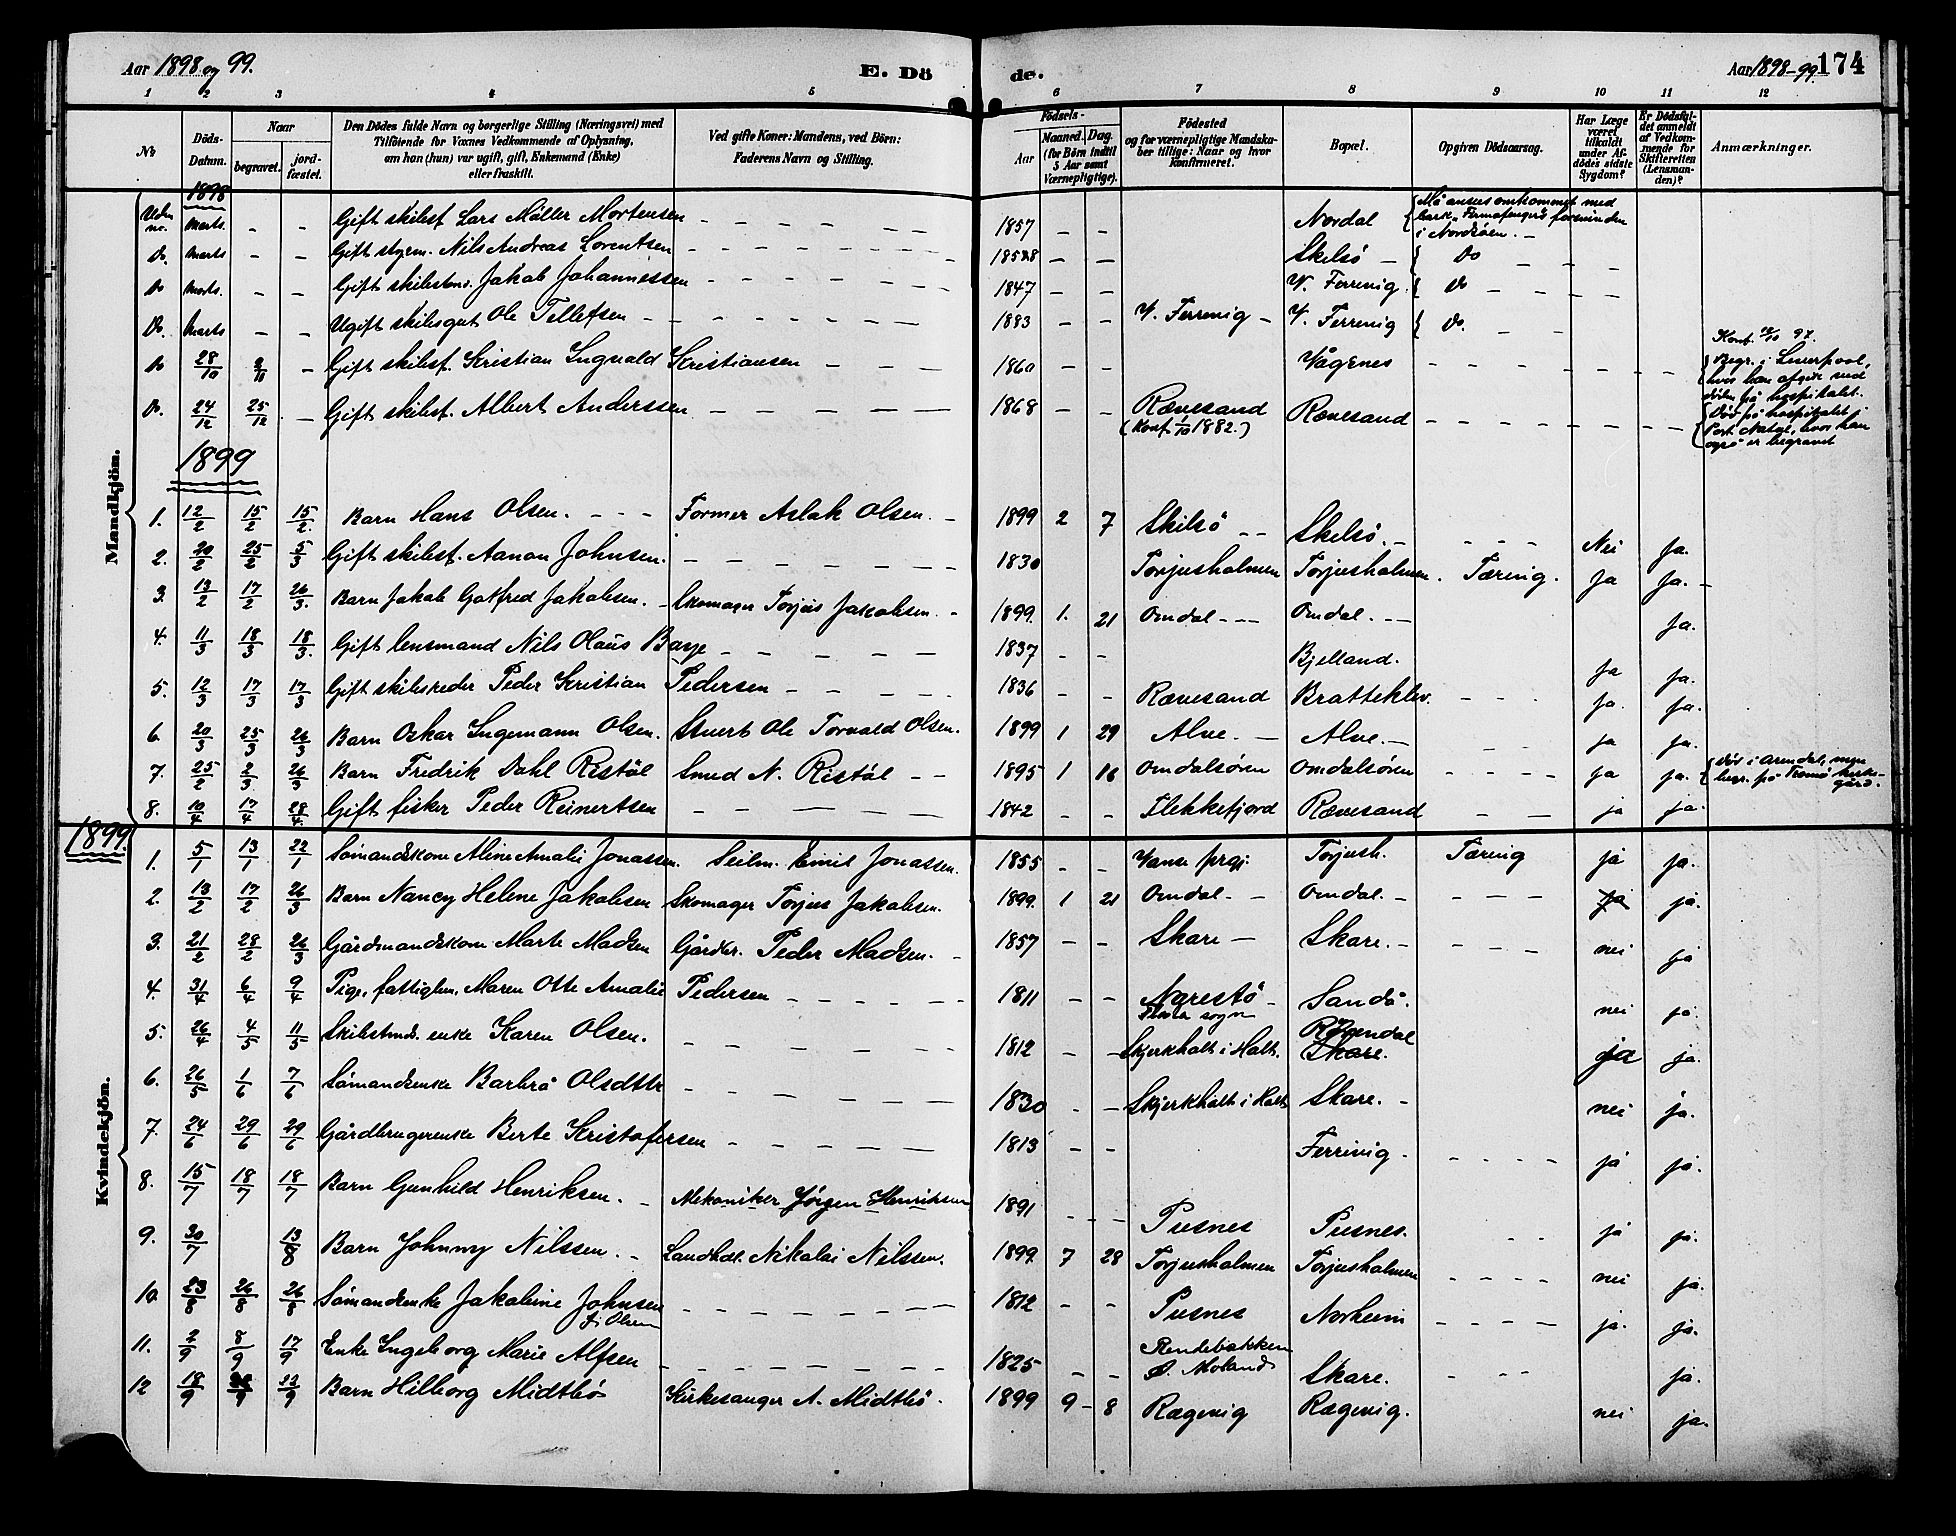 Aar 1898 og 99.
E. Dö
de.
Aar 1898-99. 174
1 2 3 4 5 6 7 8 9 10 11 12
No
Döds-Datum.
Naar
begravet.
jord-fæstet.
Den Dödes fulde Navn og borgerlige Stilling (Næringsvei) med
Tilföiende for Voxnes Vedkommende af Oplysning,
om han (hun) var ugift, gift, Enkemand (Enke)
eller fraskilt.
Ved gifte Koner: Mandens, ved Börn:
Faderens Navn og Stilling.
Födsels-
Aar
Maaned. Dag.
(for Börn indtil
5 Aar samt
Værnepligtige).
Födested
og for værnepligtige Mandska-
ber tillige: Naar og hvor
konfirmeret.
Bopæl.
Opgiven Dödsaarsag.
Har Læge
været
tilkaldt
under Af-
dödes sidste
Sygdom?
Er Dödsfal-
det anmeldt
af Vedkom-
mende for
Skifteretten
(Lensman-
den)?
Anmærkninger.
Mandkjön.
1898
Uden no. Marts. - - Gift skibsf. Lars Möller Mortensen - - 1857 - - Nordal Må ansees omkommet med bark forsvunden i Nordsöen.
Do. Marts - - Gift styrm. Nils Andreas Lorentsen - 1858 - - Skelsö - Do
Do Marts. - - Gift skibstmd. Jakob Johannessen - 1847 - - V. Ferrevig. Do
Do. Marts - - Ugift skibsgut Ole Tellefsen - 1883 - - V. Ferrevig - V. Ferrevig Do. Konf. 97.
Do 28/10 2/11 - Gift skibsf. Kristian Ingvald Kristiansen - 1860 - - Vågenes - Begr. i Liverpool, hvor han afgik ved döden på hospitalet.
Do. 24/12 25/12 - Gift skibsf. Albert Anderssen - 1868 - - Rævesand (Konf. 1/10 1882.) Rævesand - Död på hospitalet i Port Natal, hvor han også er begravet
1899
1. 12/2 15/2 15/2. Barn Hans Olsen. - Former Aslak Olsen. - 1899 2 7 Skilsö - Skelsö. - Nei Ja.
2. 20/2 25/2 5/3 Gift skibsf. Aanon Johnsen. - 1830 Torjusholmen Torjusholmen. Tæring. Ja Ja. -
3. 13/2 17/2 26/3. Barn Jakob Gotfred Jakobsen. - Skomager Torjus Jakobsen. - 1899. 1. 21 Omdal - Omdal. - Ja.
4. 11/3 18/3 18/3. Gift lensmand Nils Olaus Bajje - 1837 - - Bjelland. Ja Ja.
5. 12/3 17/3 17/3 Gift skibsreder Peder Kristian Pedersen - 1836 - - Rævesand Bratteklev. - Ja. Ja.
6. 20/3 25/3 26/3 Barn Oskar Ingemann Olsen. Stuert Ole Torvald Olsen. 1899 1 29 Alve. - Alve. - Ja Ja.
7. 25/2 2/3 26/3 Barn Fredrik Dahl Ristöl Smed N. Ristöl - 1895 1 16 Omdalsören Omdalsören - Ja Ja. Död i Arendal, men begr. på Tromö kirkegård.
8. 10/4 17/4 28/4. Gift fisker Peder Reinertsen - 1842 - - Flekkefjord Rævesand - ja ja.
1899.
Kvindekjön.
1. 5/1 13/1 22/1 Sömandskone Aline Amalie Jonassen. Seilm. Emil Jonassen. 1855 - - Vanse prgj. Torjush. Tæring ja ja.
2. 13/2 17/2 26/3 Barn Nancy Helene Jakobsen Skomager Torjus Jakobsen. 1899. 1 21 Omdal. - Omdal. - ja ja.
3. 21/2 28/2 26/3 Gårdmandskone Marte Madsen Gårdbr. Peder Madsen. - 1857 - - Skare - Skare. - nei ja
4. 31/4 6/4 9/4 Pige, fattiglem. Maren Otte Amalie Pedersen - 1811 - - Narestö - sogn Sandå. nei ja.
5. 26/4 4/5 11/5 Skibstmds. enke Karen Olsen. - 1812 - - Skjerkholt i Holt. Skare. ja ja.
6. 26/5 1/6 7/6 Sömandsenke Barbrå Olsdtr - 1830 - - Skjerkholt i Holt Skare. - nei ja.
7. 24/6 29/6 29/6 Gårdbrugerenke Berte Kristofersen - 1813 - - Ferrivig. - ja ja.
8. 15/7 18/7 18/7 Barn Gunhild Henriksen. - Mekaniker Jörgen Henriksen 1891 - - Pusnes Pusnes. - ja ja.
9. 30/7 13/8 Barn Johnny Nilssen. - Landhdl. Nikolai Nilssen. 1899. 7 28 Torjusholmen Torjusholmen - nei ja.
10. 23/8 26/8 26/8 Sömandsenke Jakobine Johnsen f. Olsen - 1812 - - Pusnes Norheim - ja. ja.
11. 2/9 8/9 17/9 Enke Ingeborg Marie Alfsen - 1825 - - Rendebakken Ö. Moland Skare. - ja.
12 18/9 22/9 Barn Hilborg Midtbö Kirkesanger A. Midtbö. 1899 9 - 8 Rægevig Rægevig. nei ja.